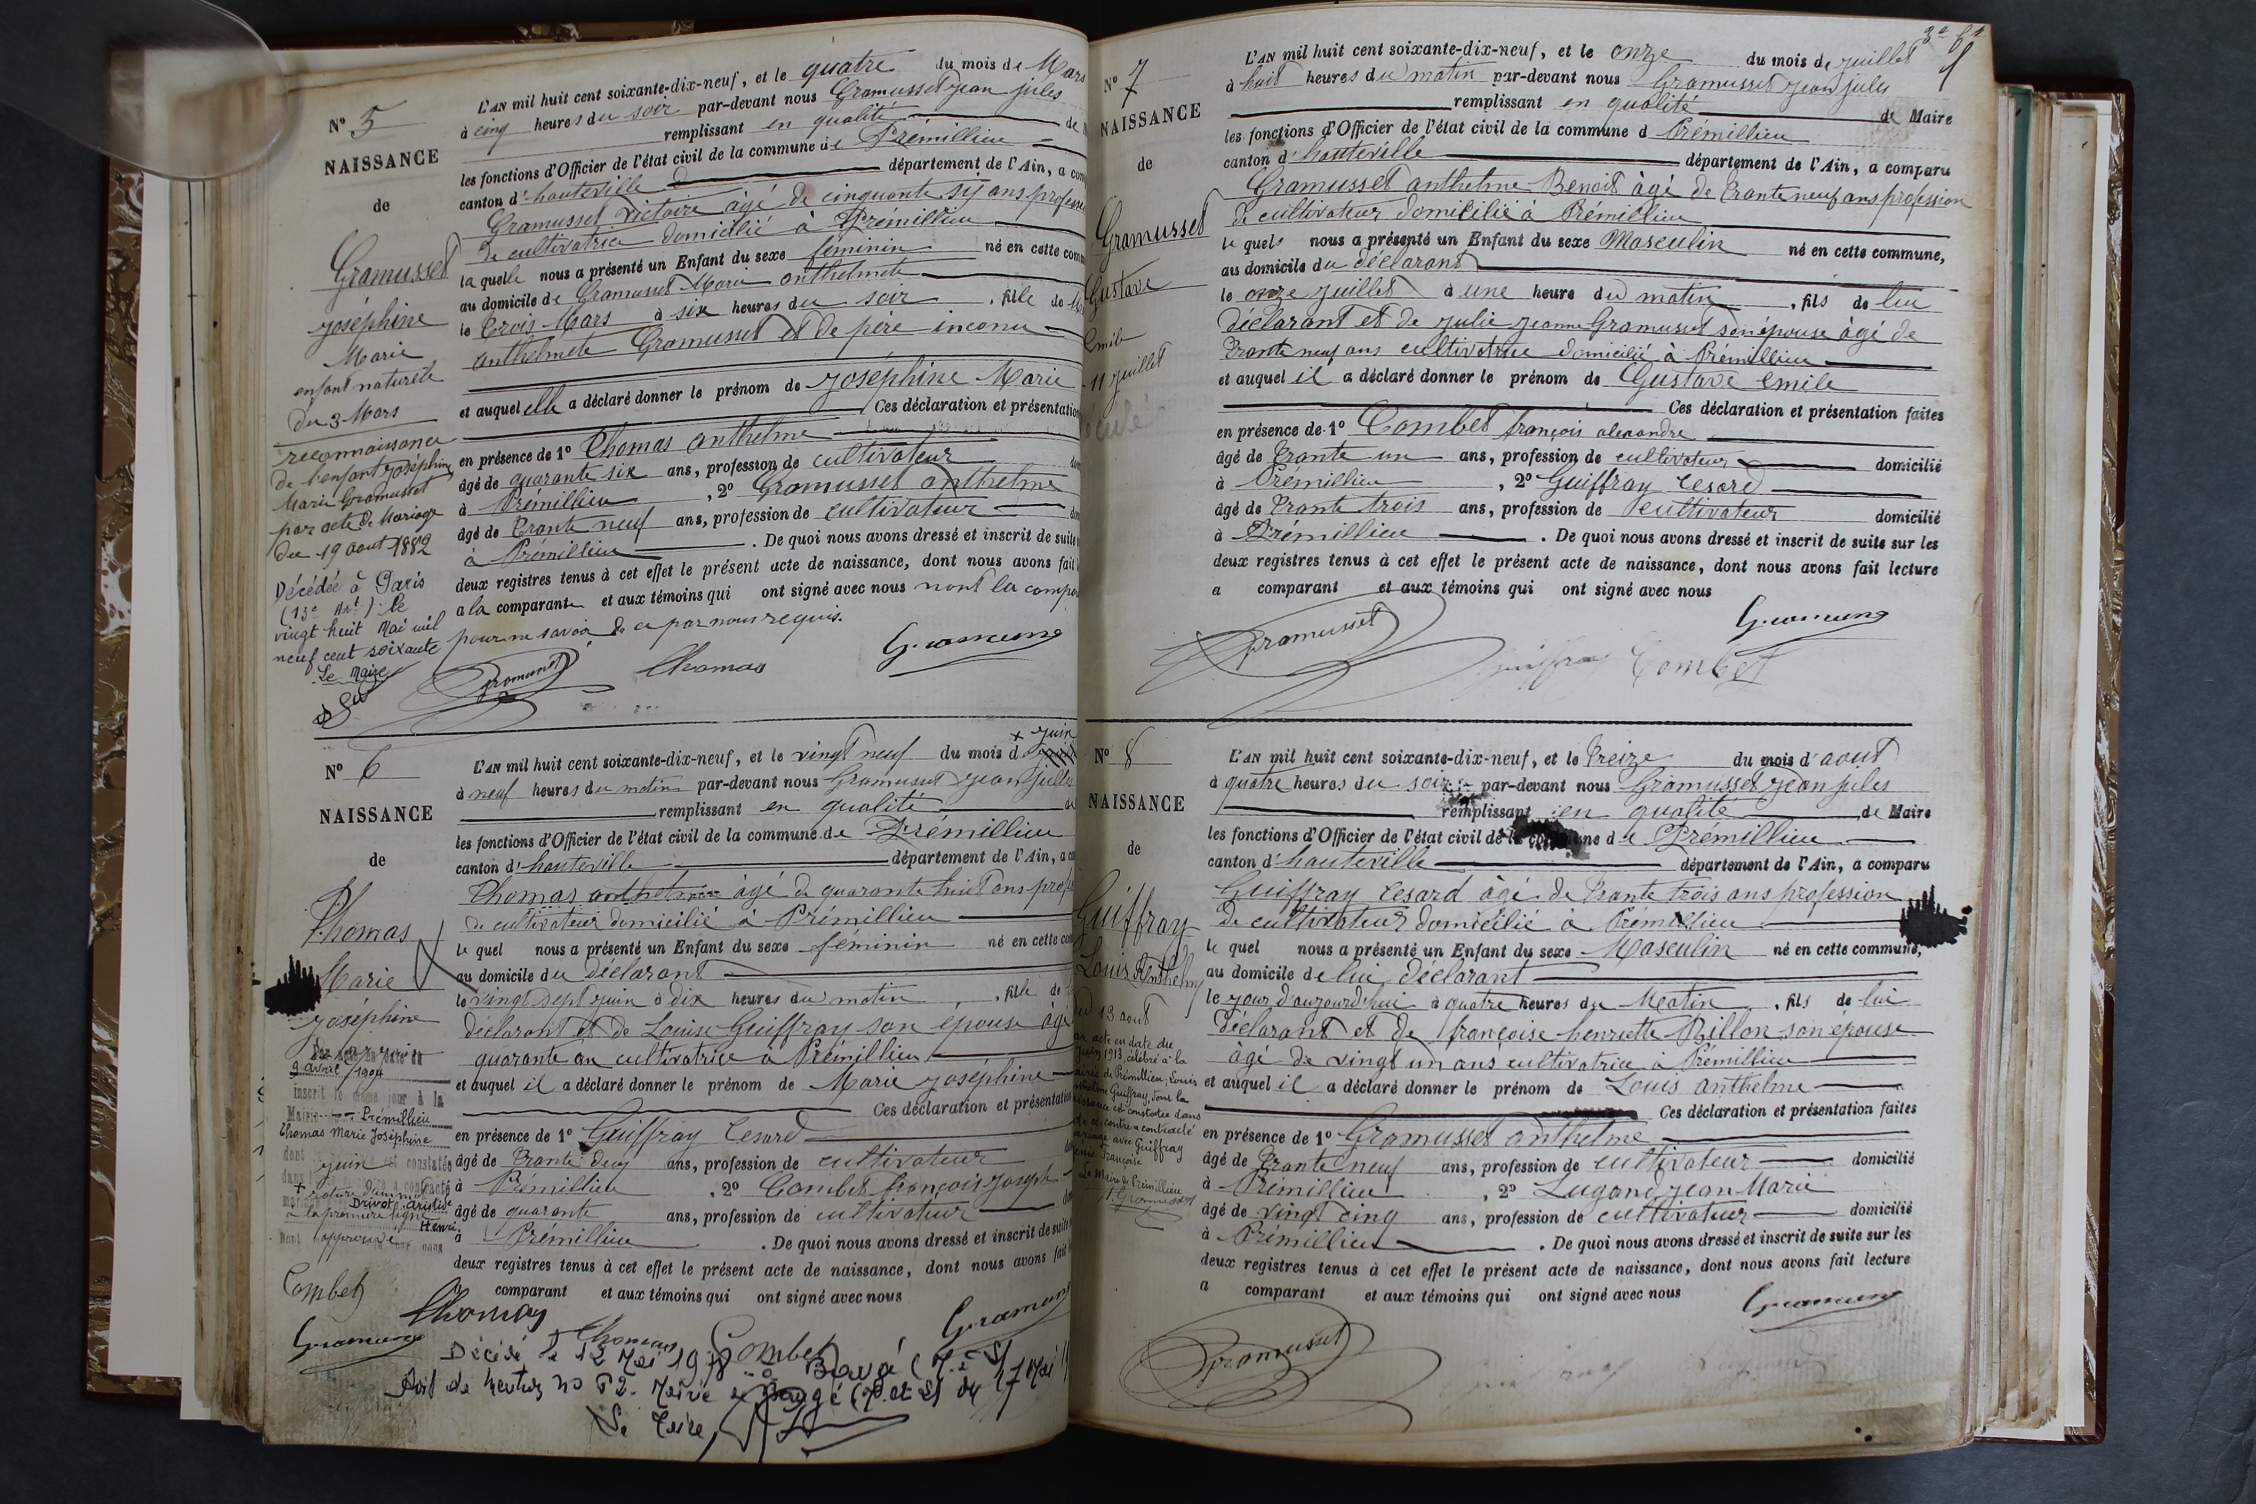 Nº 5
NAISSANCE
de
Gramusset
joséphine
Marie
enfant naturele
du 3 Mars
reconnaissance
de l'enfant joséphine
Marie Gramusset
par acte de Mariage
du 19 aout 1882
Décédée à Paris
(13e Art) le
vingt huit Mai mil
neuf cent soixante
Le Maire
L'AN mil huit cent soixante-dix-neuf, et le quatre du mois de Mars
à cinq heures du soir par-devant nous Gramusset jean jules
remplissant en qualité de
les fonctions d'Officier de l'état civil de la commune de Prémillieu
canton d'hauteville département de l'Ain, a com
Gramusset Victoire àgé de cinquante six ans profess
de cultivatrice domicilié à Prémillieu
laquelle nous a présenté un Enfant du sexe féminin né en cette com
au domicile de Gramusset Marie anthelmete
le trois Mars à six heures du soir, fille de
anthelmete Gramusset et de père inconu
et auquel elle a déclaré donner le prénom de joséphine Marie
Ces déclaration et présentation
en présence de 1º Thomas anthelme
âgé de quarante six ans, profession de cultivateur
à Prémillieu, 2º Gramusset anthelme
âgé de trante neuf ans, profession de cultivateur
à Prémillieu. De quoi nous avons dressé et inscrit de suite
deux registres tenus à cet effet le présent acte de naissance, dont nous avons fait
a la comparante et aux témoins qui ont signé avec nous nont la compa
pour ne savoir de ce par nous requis.
Gramusset Thomas
Nº 6
NAISSANCE
de
Thomas
Marie
joséphine
9 avril 1904
inscrit le même jour à la
Mairie de Prémillieu
Thomas Marie Joséphine
dont la naissance est constatée
juin
Drivot Aristide
Henri
+ rature d'un mot
à la première ligne
approuvé
Combet
L'AN mil huit cent soixante-dix-neuf, et le vingt neuf du mois d + juin
à neuf heures du matin par-devant nous Gramusset jean jules
remplissant en qualité de
les fonctions d'Officier de l'état civil de la commune de Prémillieu
canton d'hauteville département de l'Ain, a com
Thomas anthelme àgé de quarante huit ans profe
de cultivateur domicilié à Prémillieu
le quel nous a présenté un Enfant du sexe féminin né en cette com
au domicile du déclarant
le vingt sept juin à dix heures du matin, fille de
déclarant et de Louise Guiffray son épouse àgé
quarante un cultivatrice à Prémillieu
et auquel il a déclaré donner le prénom de Marie joséphine
Ces déclaration et présentation
en présence de 1º Guiffray Cesard
âgé de trante deux ans, profession de cultivateur
à Prémillieu, 2º Combet françois joseph
âgé de quarante ans, profession de cultivateur
à Prémillieu. De quoi nous avons dressé et inscrit de suite
deux registres tenus à cet effet le présent acte de naissance, dont nous avons fait
comparant et aux témoins qui ont signé avec nous
Thomas
Thomas Combet
Décédé le 12 Mai 19
Avis de mention no 62. Mairie de Baugé (M. et L) du 17 Mai
Le Maire,
Nº 7
NAISSANCE
de
Gramusset
Gustave
Emile
11 juillet
L'AN mil huit cent soixante-dix-neuf, et le onze du mois de juillet
à huit heures du matin par-devant nous Gramusset jean jules
remplissant en qualité de Maire
les fonctions d'Officier de l'état civil de la commune d Prémillieu
canton d'hauteville département de l'Ain, a comparu
Gramusset anthelme Benoit àgé de trante neuf ans profession
de cultivateur domicilié à Prémillieu
le quel nous a présenté un Enfant du sexe Masculin né en cette commune,
au domicile du déclarant
le onze juillet à une heure du matin, fils de lui
déclarant et de julie jeanne Gramusset son épouse àgé de
trante neuf ans cultivatrice domicilié à Prémillieu
et auquel il a déclaré donner le prénom de Gustave emile
Ces déclaration et présentation faites
en présence de 1º Combet françois alexandre
âgé de trante un ans, profession de cultivateur domicilié
à Prémillieu, 2º Guiffray Cesard
âgé de trante trois ans, profession de cultivateur domicilié
à Prémillieu. De quoi nous avons dressé et inscrit de suite sur les
deux registres tenus à cet effet le présent acte de naissance, dont nous avons fait lecture
a comparant et aux témoins qui ont signé avec nous
Gramusset
Guiffray Combet
Nº 8
NAISSANCE
de
Guiffray
Louis Anthelme
13 aout
acte en date du
juin 1913, célébré à la
mairie de Prémillieu, Louis
Anthelme Guiffray, dont la
naissance est constatée dans
contre a contracté
mariage avec Guiffray
Françoise
Le Maire de Prémillieu
Gramusset
L'AN mil huit cent soixante-dix-neuf, et le treize du mois d'aout
à quatre heures du soir par-devant nous Gramusset jean jules
remplissant en qualité de Maire
les fonctions d'Officier de l'état civil de la commune de Prémillieu
canton d'hauteville département de l'Ain, a comparu
Guiffray Cesard àgé de trante trois ans profession
de cultivateur domicilié à Prémillieu
le quel nous a présenté un Enfant du sexe Masculin né en cette commune,
au domicile de lui déclarant
le jour d'aujourd'hui à quatre heures du Matin, fils de lui
déclarant et de françoise henriette Billon son épouse
àgé de vingt un ans cultivatrice à Prémillieu
et auquel il a déclaré donner le prénom de Louis anthelme
Ces déclaration et présentation faites
en présence de 1º Gramusset anthelme
âgé de trante neuf ans, profession de cultivateur domicilié
à Prémillieu, 2º Lugand jean Marie
âgé de vingt cinq ans, profession de cultivateur domicilié
à Prémillieu. De quoi nous avons dressé et inscrit de suite sur les
deux registres tenus à cet effet le présent acte de naissance, dont nous avons fait lecture
a comparant et aux témoins qui ont signé avec nous
Gramusset